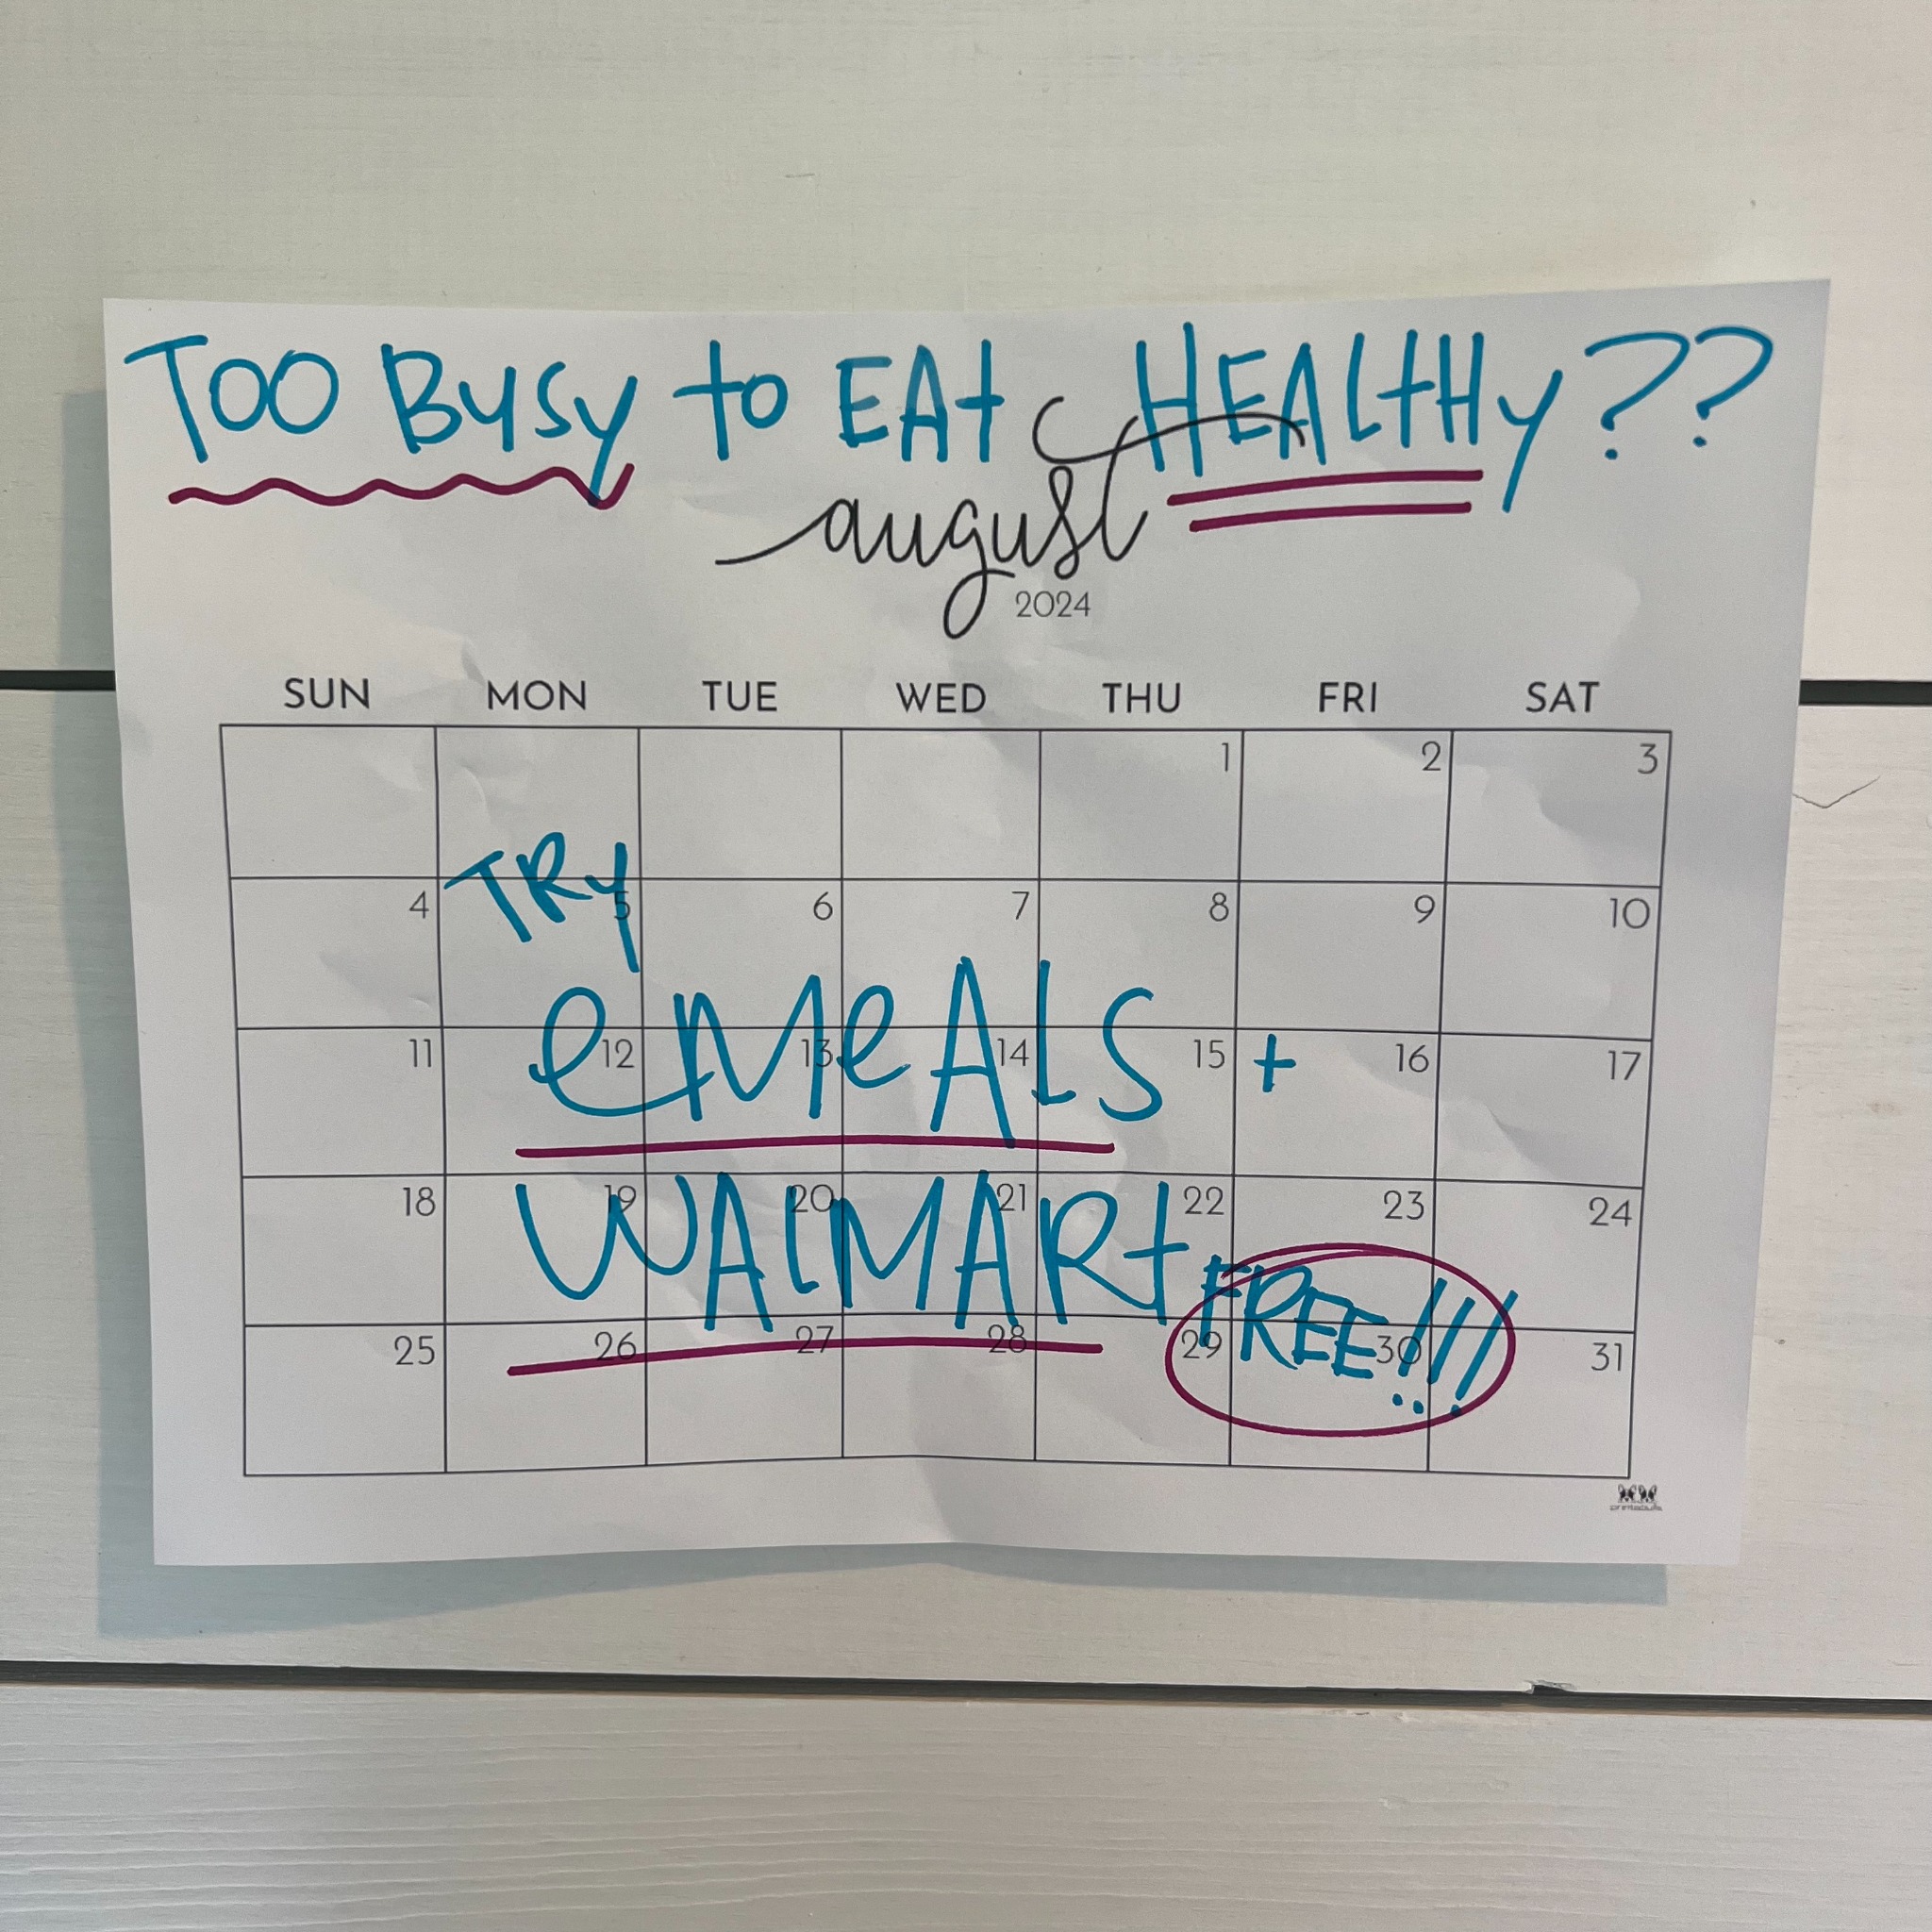 TOO BUSY to EAt HEALtHy??
august
2024
SUN MON TUE WED THU FRI SAT
1 2 3
TRy
4 5 6 7 8 9 10
eMeALS +
11 12 13 14 15 16 17
WALMARt
18 19 20 21 22 23 24
FREE!!!
25 26 27 28 29 30 31
printabulls